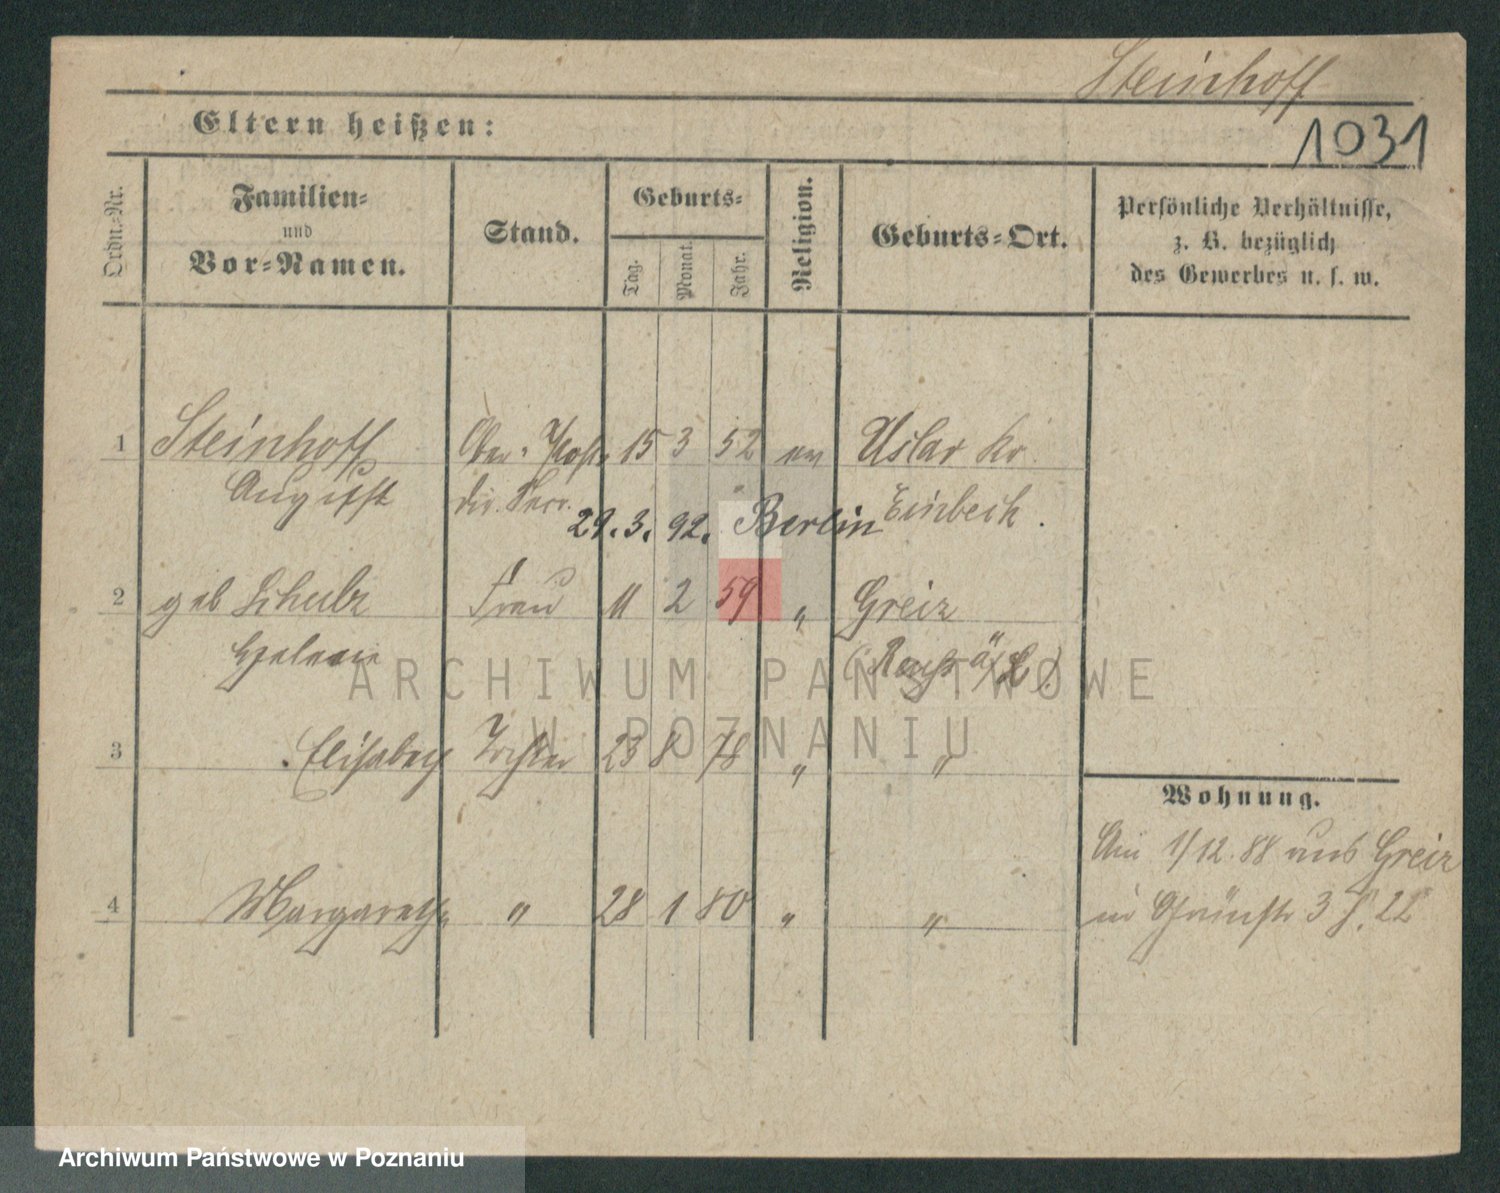 Steinhoff
1031
Eltern heißen:
Ordn.-Nr.
Familien-
und
Vor-Namen.
Stand.
Geburts-
Tag.
Monat.
Jahr.
Religion.
Geburts-Ort.
Persönliche Verhältnisse,
z. B. bezüglich
des Gewerbes u. s. w.
1 Steinhoff Ober-Post- 15 3 52 ev Uslar Kr.
August dir. Secr. Einbeck.
29.3.92. Berlin
2 geb Schulz Frau 11 2 59 " Greiz
Helene (Reuß ä/L)
3 Elisabeth Tochter 23 8 78 " "
4 Margareth " 28 1 80 " "
Wohnung.
Am 1/12.88 aus Greiz
in Grünstr 3
ARCHIWUM PAŃSTWOWE
W POZNANIU
Archiwum Państwowe w Poznaniu